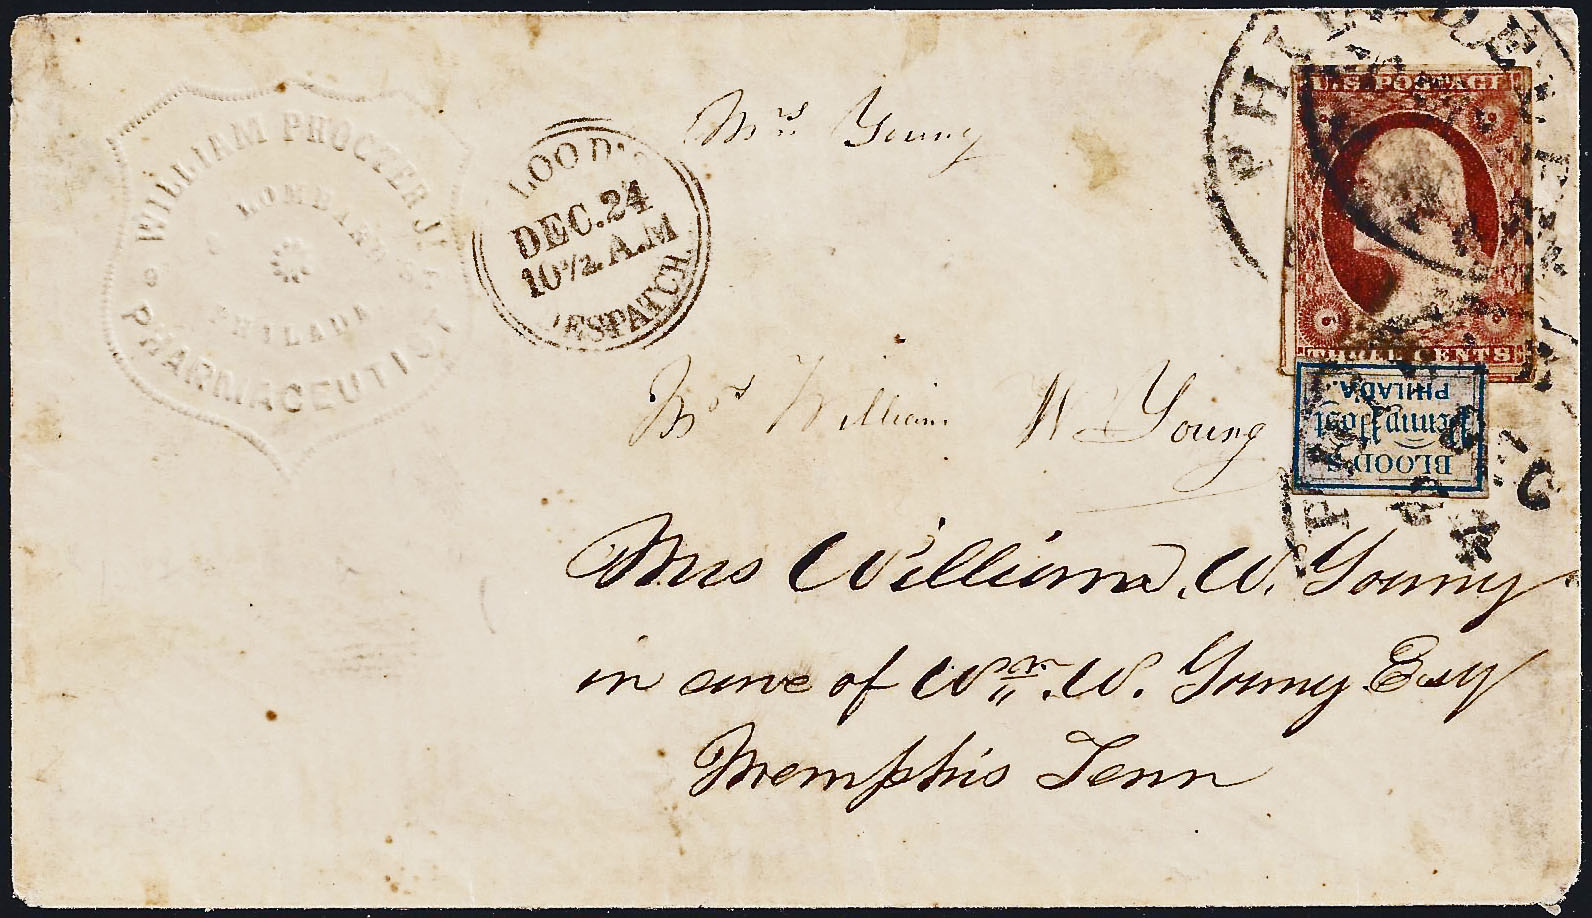 WILLIAM PROCTER JR
LOMBARD St
PHILADA
PHARMACEUTIST
LOOD'S
DEC. 24
10 1/2 A.M
ESPATCH
Mrs. Young
Mrs William W Young
Mrs William. W. Young
in care of Wm. W. Young Esq
Memphis Tenn
PHILADE
U.S. POSTAGE
THREE CENTS
BLOOD'S
Penny Post
PHILADA.